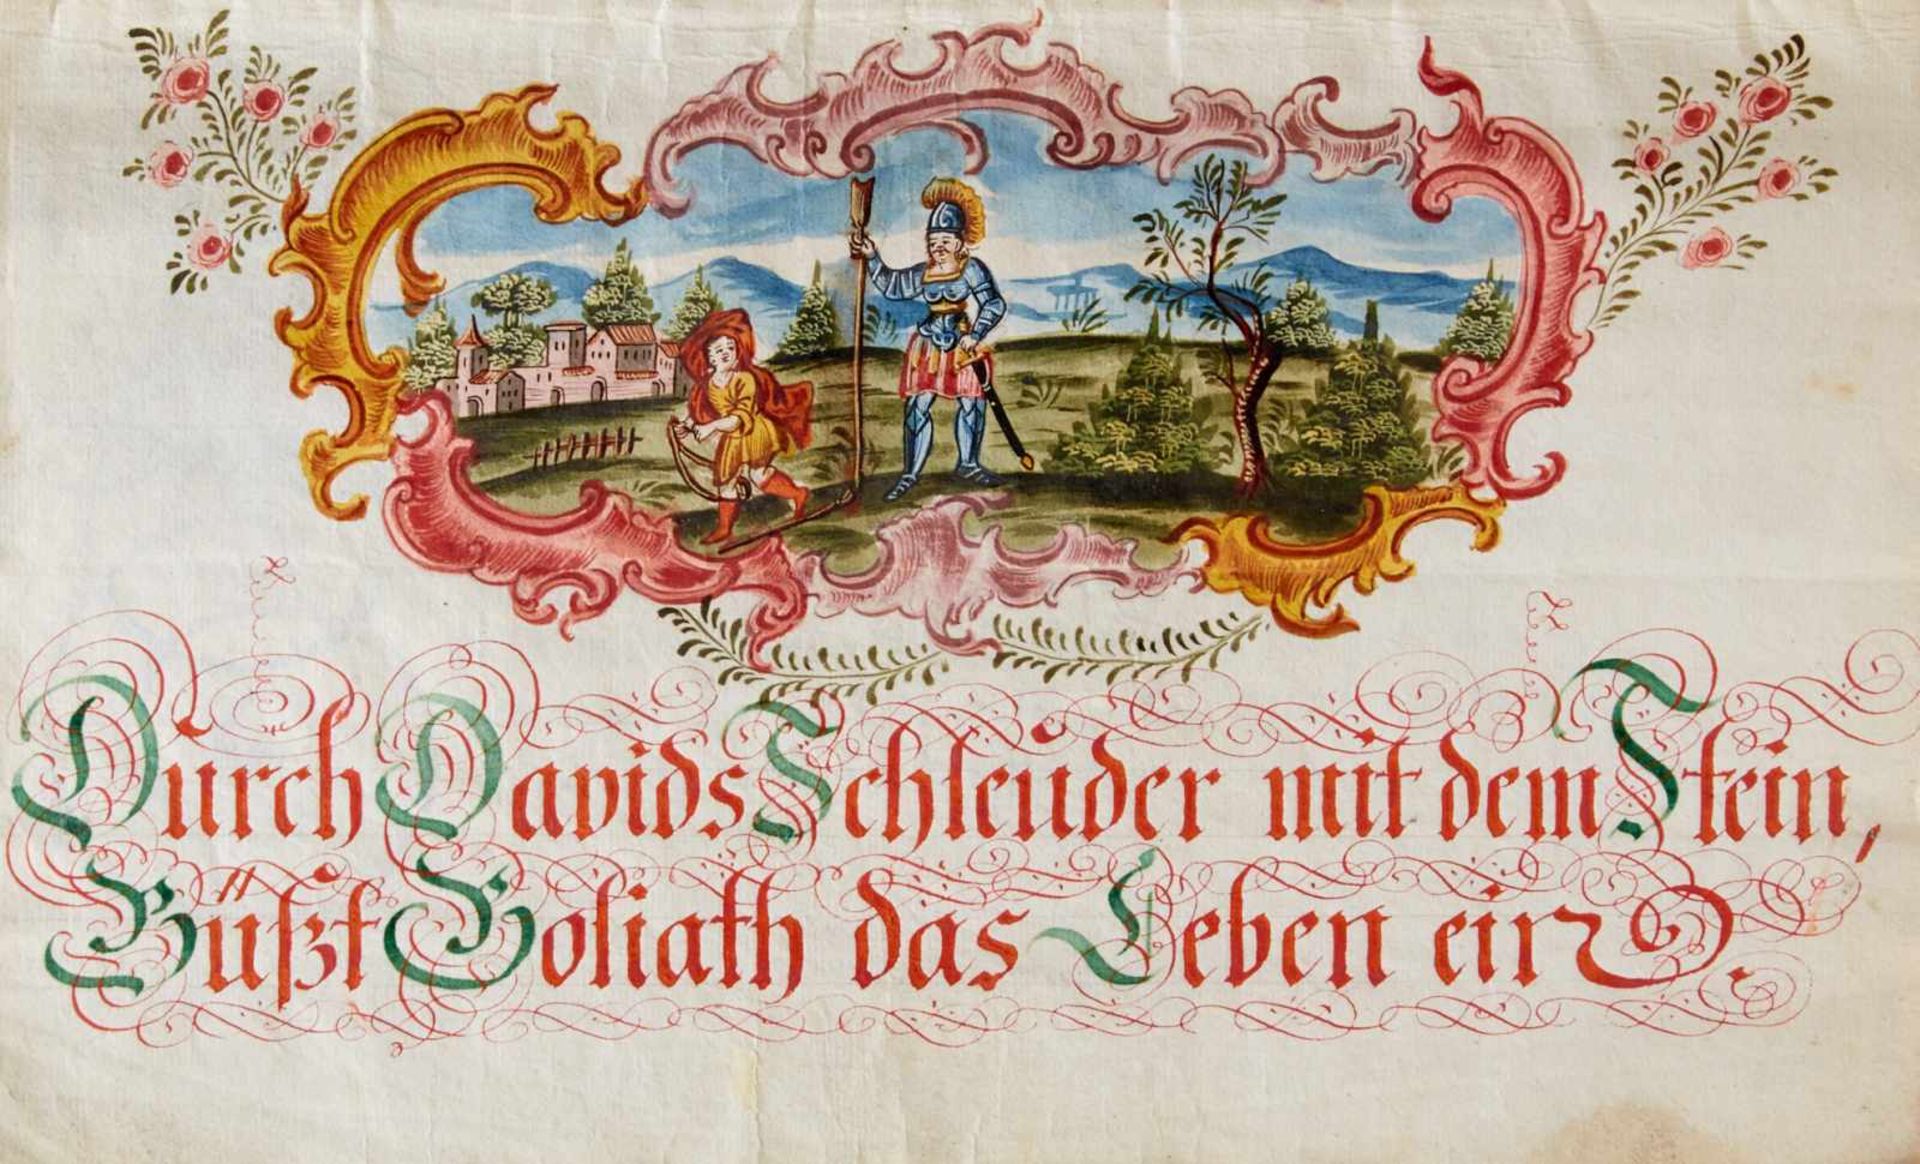 Durch Davids Schleuder mit dem Stein,
Büßt Goliath das Leben ein.